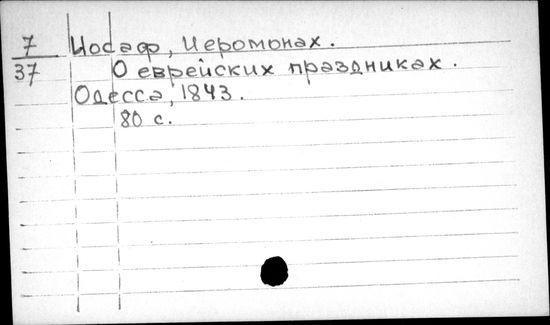 7 Иосаф, Иеромонах.
37 О еврейских праздниках.
Одесса, 1843.
80 с.